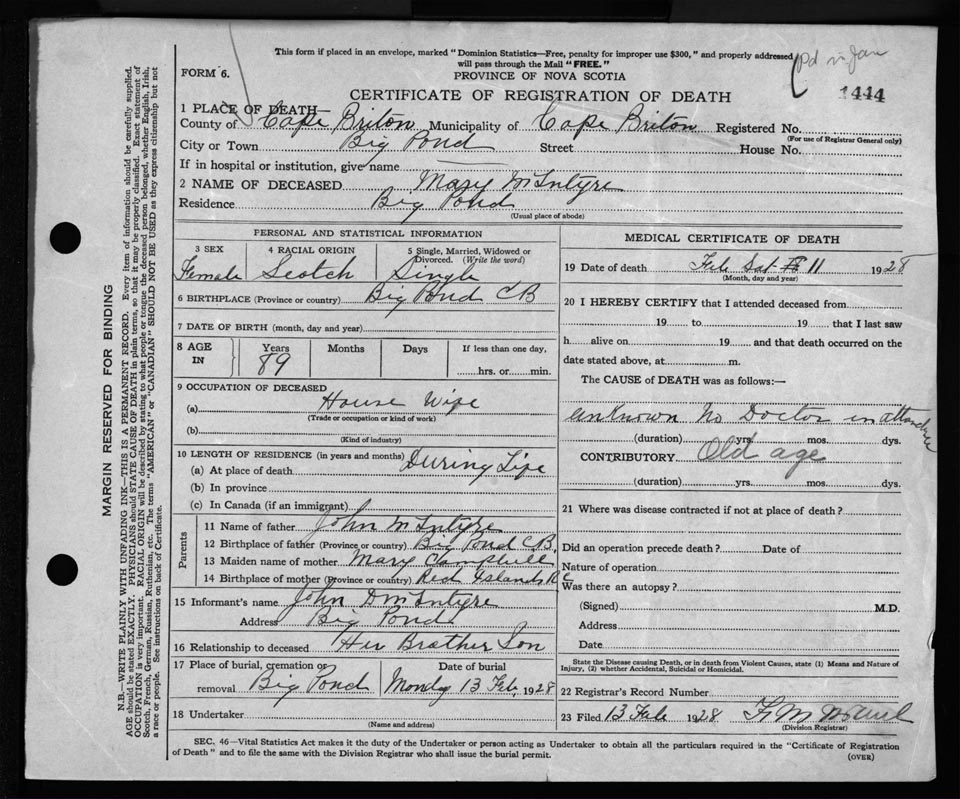 This form if placed in an envelope, marked "Dominion Statistics—Free, penalty for improper use $300," and properly addressed
will pass through the Mail "FREE."
Pd in Jan
FORM 6.
PROVINCE OF NOVA SCOTIA
CERTIFICATE OF REGISTRATION OF DEATH
1444
1 PLACE OF DEATH—
County of Cape Briton Municipality of Cape Briton Registered No.
(For use of Registrar General only)
City or Town Big Pond Street House No.
If in hospital or institution, give name
2 NAME OF DECEASED Mary McIntyre
Residence Big Pond
(Usual place of abode)
PERSONAL AND STATISTICAL INFORMATION
3 SEX 4 RACIAL ORIGIN 5 Single, Married, Widowed or
Divorced. (Write the word)
Female Scotch Single
6 BIRTHPLACE (Province or country) Big Pond CB
7 DATE OF BIRTH (month, day and year)
8 AGE IN Years Months Days If less than one day,
89 hrs. or min.
9 OCCUPATION OF DECEASED
(a) House Wife
(Trade or occupation or kind of work)
(b)
(Kind of industry)
10 LENGTH OF RESIDENCE (in years and months)
(a) At place of death During Life
(b) In province
(c) In Canada (if an immigrant)
Parents
11 Name of father John McIntyre
12 Birthplace of father (Province or country) Big Pond CB.
13 Maiden name of mother Mary Campbell
14 Birthplace of mother (Province or country) Red Islands R C
15 Informant's name John D McIntyre
Address Big Pond
16 Relationship to deceased Her Brother Son
17 Place of burial, cremation or removal Big Pond
Date of burial
Monday 13 Feb, 1928
18 Undertaker
(Name and address)
MEDICAL CERTIFICATE OF DEATH
19 Date of death Feb Sat 11 1928
(Month, day and year)
20 I HEREBY CERTIFY that I attended deceased from
19 to 19 that I last saw
h alive on 19 and that death occurred on the
date stated above, at m.
The CAUSE of DEATH was as follows:—
unknown No Doctor in attendance
(duration) yrs. mos. dys.
CONTRIBUTORY Old age
(duration) yrs. mos. dys.
21 Where was disease contracted if not at place of death?
Did an operation precede death? Date of
Nature of operation
Was there an autopsy?
(Signed) M.D.
Address
Date
State the Disease causing Death, or in death from Violent Causes, state (1) Means and Nature of
Injury, (2) whether Accidental, Suicidal or Homicidal.
22 Registrar's Record Number
23 Filed 13 Feb 1928
(Division Registrar)
SEC. 46—Vital Statistics Act makes it the duty of the Undertaker or person acting as Undertaker to obtain all the particulars required in the "Certificate of Registration
of Death" and to file the same with the Division Registrar who shall issue the burial permit.
(OVER)
MARGIN RESERVED FOR BINDING
N.B.—WRITE PLAINLY WITH UNFADING INK—THIS IS A PERMANENT RECORD. Every item of information should be carefully supplied.
AGE should be stated EXACTLY. PHYSICIANS should STATE CAUSE OF DEATH in plain terms, so that it may be properly classified. Exact statement of
OCCUPATION is very important. RACIAL ORIGIN will be described by stating to what people or tongue the deceased person belonged, whether English, Irish,
Scotch, French, German, Russian, Ruthenian, etc. The terms "AMERICAN" or "CANADIAN" SHOULD NOT BE USED as they express citizenship but not
a race or people. See instructions on back of Certificate.